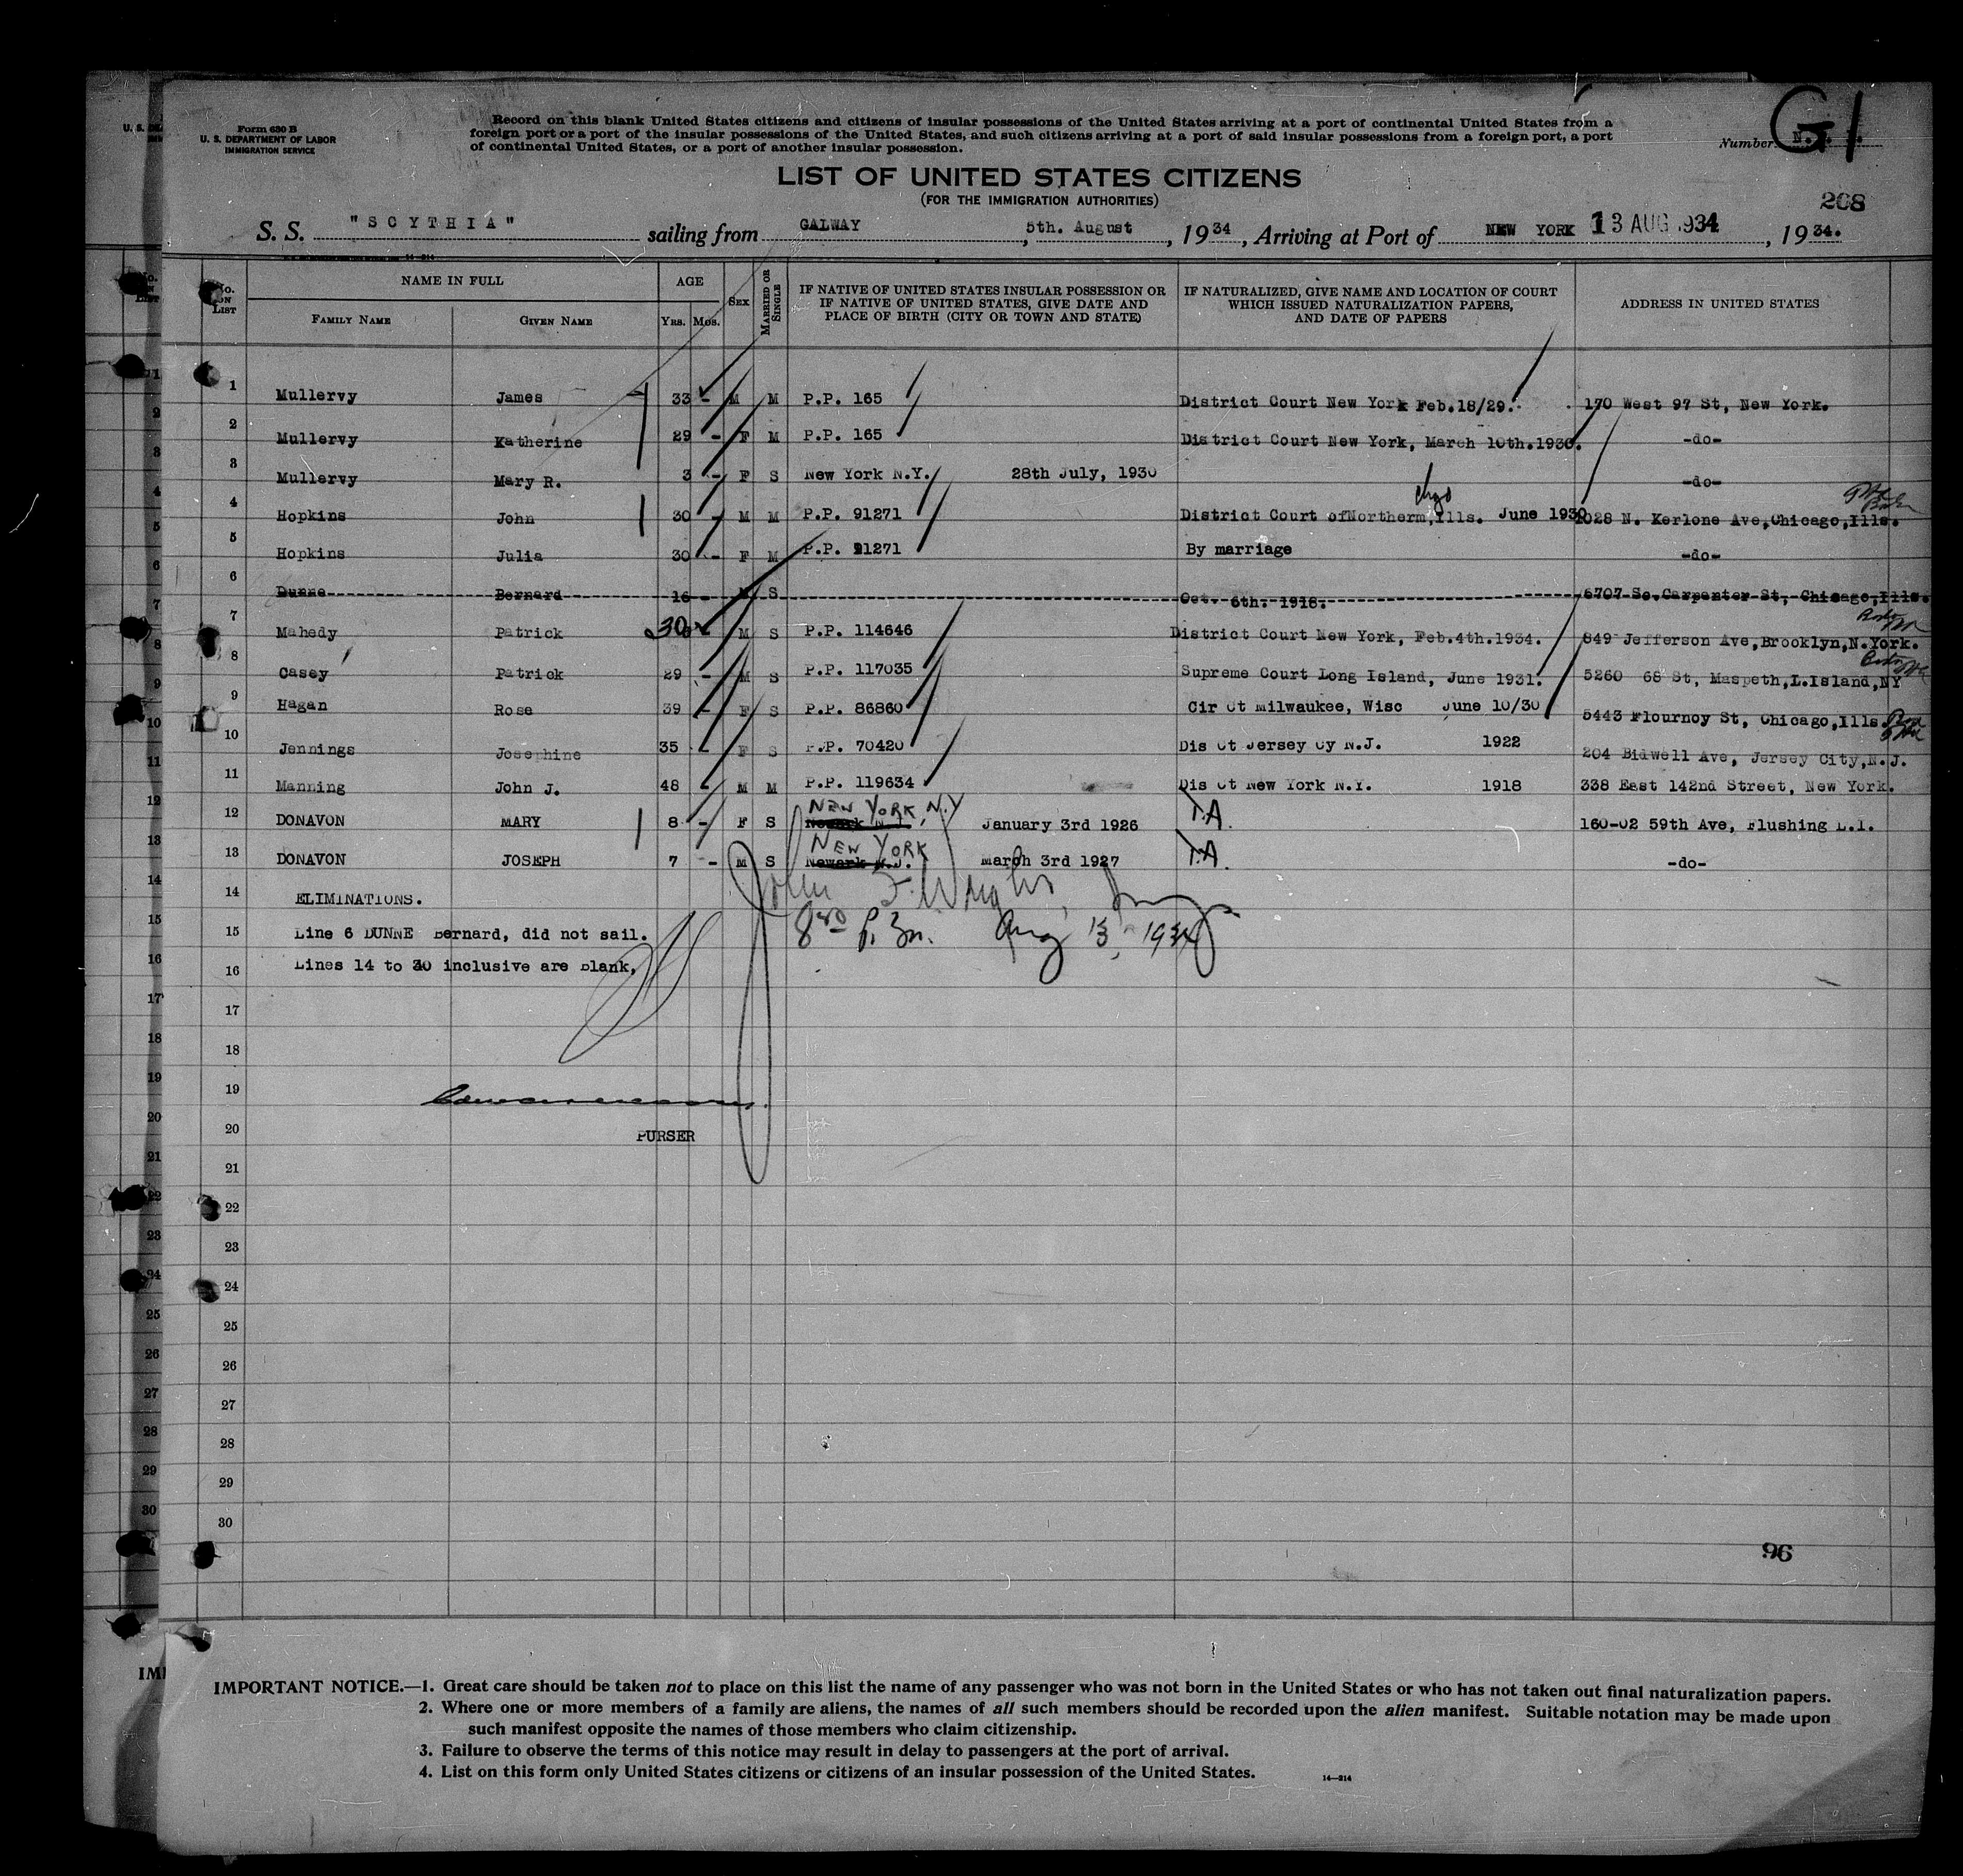 Form 630 B
U. S. DEPARTMENT OF LABOR
IMMIGRATION SERVICE
Record on this blank United States citizens and citizens of insular possessions of the United States arriving at a port of continental United States from a
foreign port or a port of the insular possessions of the United States, and such citizens arriving at a port of said insular possessions from a foreign port, a port
of continental United States, or a port of another insular possession.
G1
Number
LIST OF UNITED STATES CITIZENS
(FOR THE IMMIGRATION AUTHORITIES)
268
S. S. "SCYTHIA" sailing from GALWAY, 5th. August, 1934, Arriving at Port of NEW YORK 13 AUG 1934, 1934.
No. ON LIST NAME IN FULL AGE SEX MARRIED OR SINGLE IF NATIVE OF UNITED STATES INSULAR POSSESSION OR IF NATIVE OF UNITED STATES, GIVE DATE AND PLACE OF BIRTH (CITY OR TOWN AND STATE) IF NATURALIZED, GIVE NAME AND LOCATION OF COURT WHICH ISSUED NATURALIZATION PAPERS, AND DATE OF PAPERS ADDRESS IN UNITED STATES
FAMILY NAME GIVEN NAME YRS. MOS.
1 Mullervy James 33 - M M P.P. 165 District Court New York Feb.18/29. 170 West 97 St, New York.
2 Mullervy Katherine 29 - F M P.P. 165 District Court New York, March 10th.1930. -do-
3 Mullervy Mary R. 3 - F S New York N.Y. 28th July, 1930 -do-
4 Hopkins John 30 - M M P.P. 91271 District Court of Northerm, Ills. June 1930 1028 N. Kerlone Ave, Chicago, Ills.
5 Hopkins Julia 30 - F M P.P. 91271 By marriage -do-
6 Dunne Bernard 16 - M S Oct. 6th. 1918. 6707 So. Carpenter St, Chicago, Ills.
7 Mahedy Patrick 30 M S P.P. 114646 District Court New York, Feb.4th.1934. 849 Jefferson Ave, Brooklyn, N.York.
8 Casey Patrick 29 - M S P.P. 117035 Supreme Court Long Island, June 1931. 5260 68 St, Maspeth, L.Island, NY
9 Hagan Rose 39 - F S P.P. 86860 Cir Ct Milwaukee, Wisc June 10/30 5443 Flournoy St, Chicago, Ills
10 Jennings Josephine 35 - F S P.P. 70420 Dis Ct Jersey Cy N.J. 1922 204 Bidwell Ave, Jersey City, N.J.
11 Manning John J. 48 - M M P.P. 119634 Dis Ct New York N.Y. 1918 338 East 142nd Street, New York.
NEW YORK, N.Y
12 DONAVON MARY 8 - F S Newark N.J. January 3rd 1926 T.A 160-02 59th Ave, Flushing L.I.
NEW YORK
13 DONAVON JOSEPH 7 - M S Newark N.J. March 3rd 1927 T.A -do-
14 ELIMINATIONS.
15 Line 6 DUNNE Bernard, did not sail. Aug 13, 1934
16 Lines 14 to 30 inclusive are blank,
17
18
19
20 PURSER
21
22
23
24
25
26
27
28
29
30
96
IMPORTANT NOTICE.—1. Great care should be taken not to place on this list the name of any passenger who was not born in the United States or who has not taken out final naturalization papers.
2. Where one or more members of a family are aliens, the names of all such members should be recorded upon the alien manifest. Suitable notation may be made upon
such manifest opposite the names of those members who claim citizenship.
3. Failure to observe the terms of this notice may result in delay to passengers at the port of arrival.
4. List on this form only United States citizens or citizens of an insular possession of the United States.
14—214